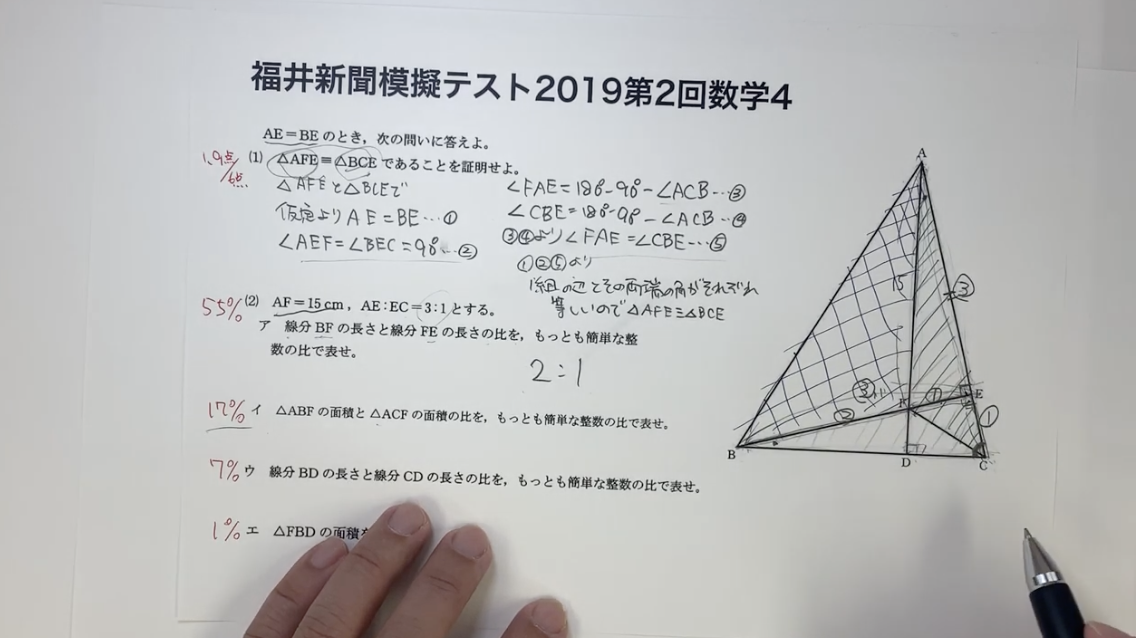 福井新聞模擬テスト2019第2回数学4
AE＝BE のとき，次の問いに答えよ。
1.9点/6点
(1) △AFE≡△BCE であることを証明せよ。
△AFEと△BCEで
仮定よりAE＝BE…①
∠AEF＝∠BEC＝90°…②
∠FAE＝180°－90°－∠ACB…③
∠CBE＝180°－90°－∠ACB…④
③④より∠FAE＝∠CBE…⑤
①②⑤より
1組の辺とその両端の角がそれぞれ
等しいので△AFE≡△BCE
55% (2) AF＝15 cm，AE：EC＝3：1 とする。
ア 線分 BF の長さと線分 FE の長さの比を，もっとも簡単な整
数の比で表せ。
2：1
17% イ △ABF の面積と △ACF の面積の比を，もっとも簡単な整数の比で表せ。
7% ウ 線分 BD の長さと線分 CD の長さの比を，もっとも簡単な整数の比で表せ。
1% エ △FBD の面積
A
15
③
③
E
①
②
①
B
D
C